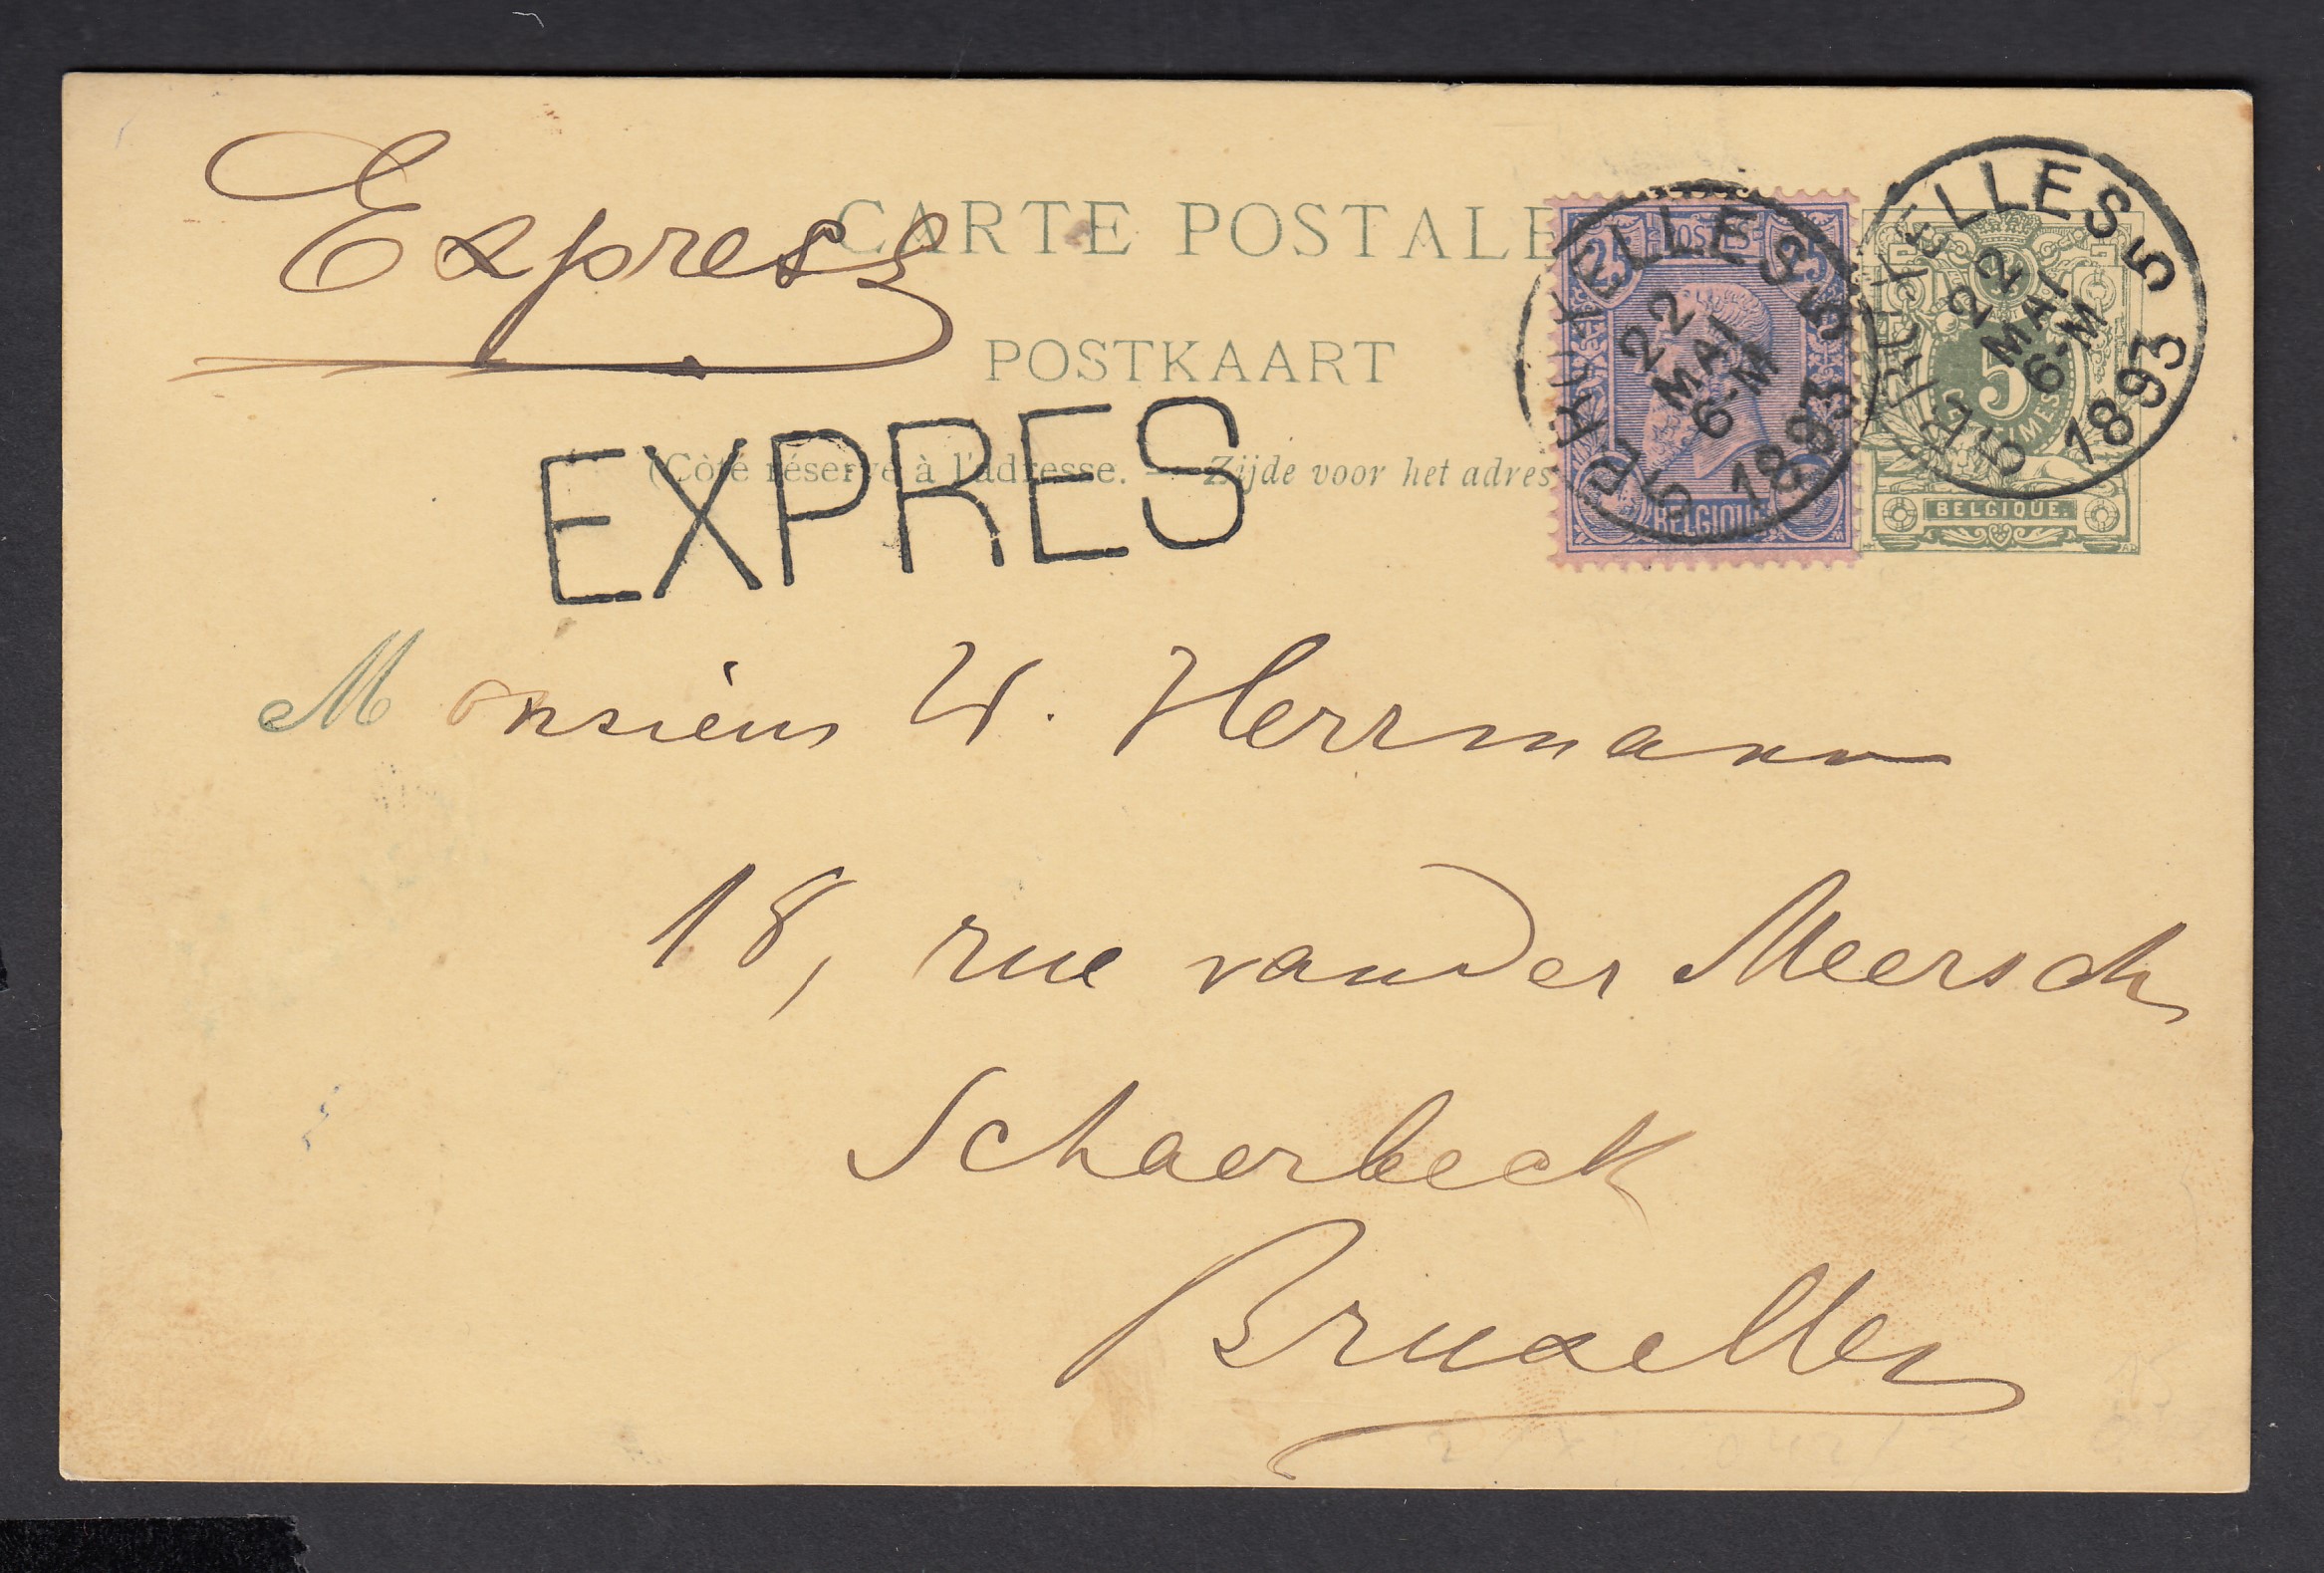 Express
CARTE POSTALE
POSTKAART
(Côté réservé à l'adresse. — Zijde voor het adres
EXPRES
25 POSTES 25
BELGIQUE
BRUXELLES 5
22
MAI
6-M
1893
5
BRUXELLES 5
22
MAI
6-M
1893
5
5
CENTIMES
BELGIQUE.
Monsieur W. Herrmann
18, rue vander Meersch
Schaerbeek
Bruxelles